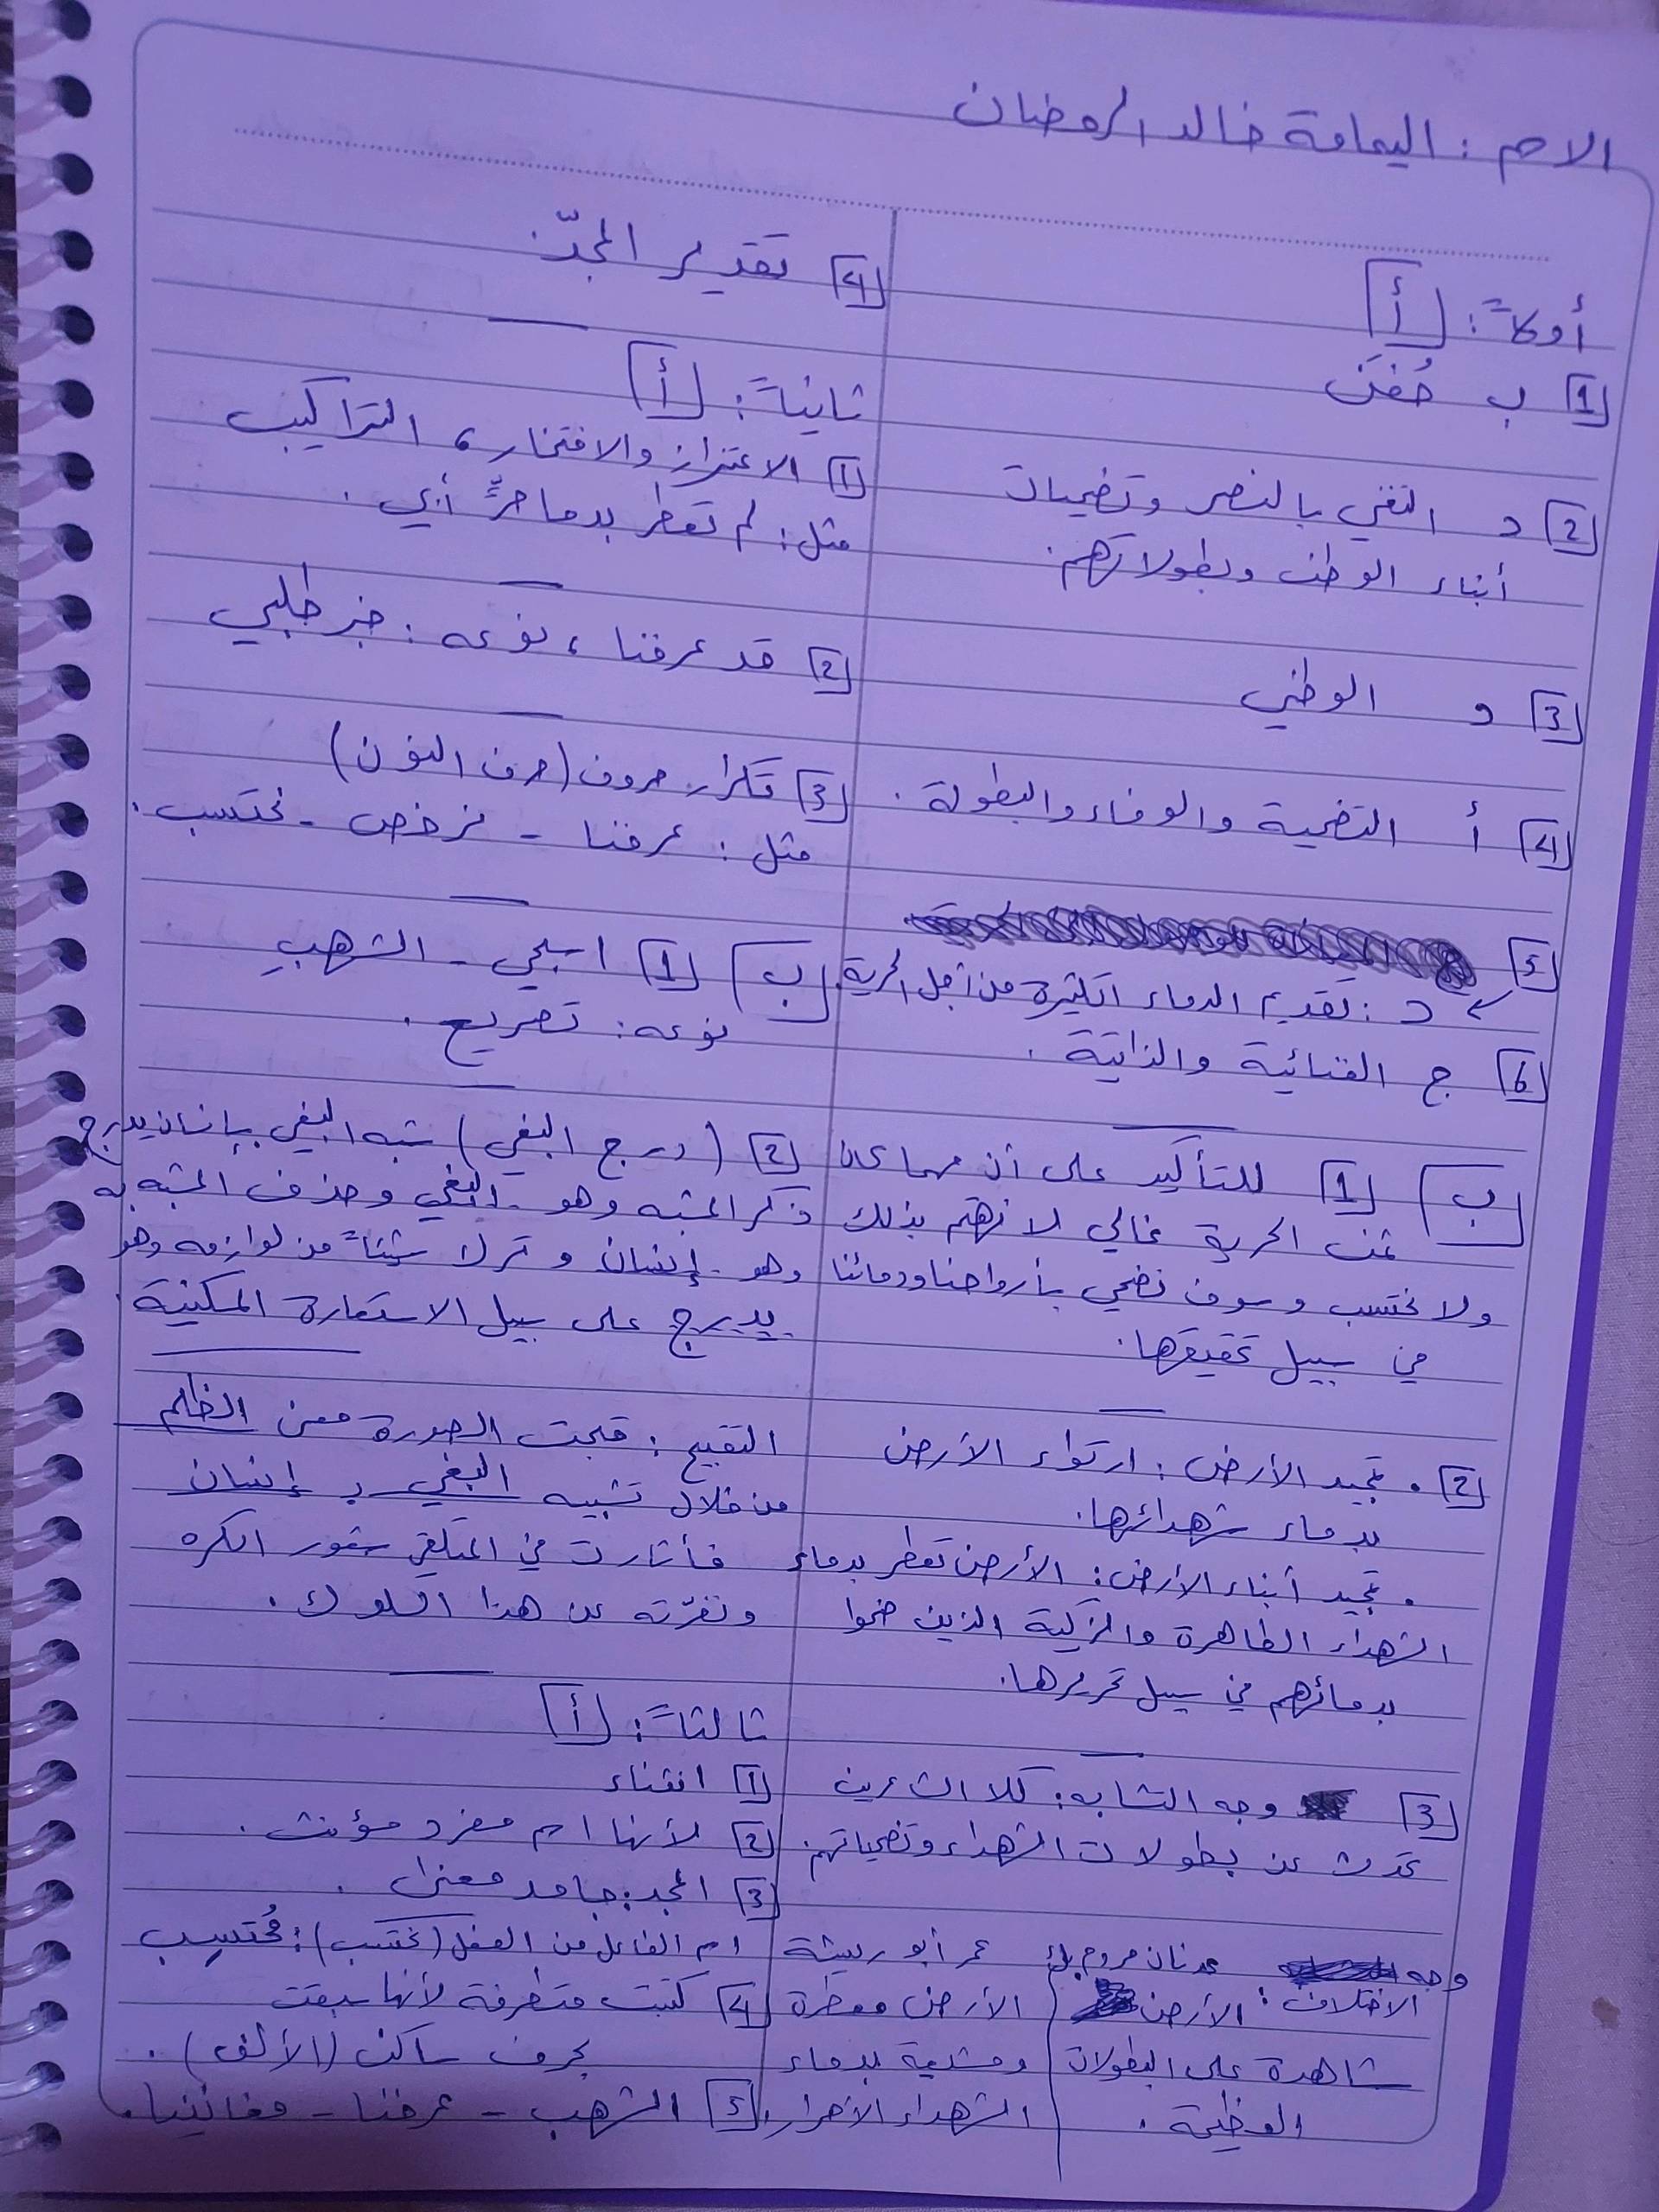 الاسم : اليمامة خالد الرمضان
أولاً : أ
1 ب حُفَن
2 د التغني بالنصر وتضحيات
أبناء الوطن وبطولاتهم.
3 د الوطني
4 أ التضحية والوفاء والبطولة.
5
د : تقديم الدماء الكثيرة من أجل الحرية.
6 ج الغنائية والذاتية.
ب 1 للتأكيد على أن مهما كان
ثمن الحرية غالي لا نهتم بذلك
ولا نحتسب وسوف نضحي بأرواحنا ودمائنا
في سبيل تحقيقها.
2 • تمجيد الأرض : ارتواء الأرض
بدماء شهدائها.
• تمجيد أبناء الأرض : الأرض تعطر بدماء
الشهداء الطاهرة والزكية الذين ضحوا
بدمائهم في سبيل تحريرها.
3 وجه التشابه : كلا الشاعرين
تحدث عن بطولات الشهداء وتضحياتهم.
وجه الاختلاف : عدنان مردم بك عمر أبو ريشة
الأرض الأرض معطرة
شاهدة على البطولات ومشبعة بدماء
العظيمة. الشهداء الأحرار.
4 تقدير المجدّ.
ثانياً : أ
1 الاعتزاز والافتخار ، التراكيب
مثل : لم تعطر بدما حرٍّ أبي.
2 قد عرفنا ، نوعه : خبر طلبي
3 تكرار حروف (حرف النون)
مثل : عرفنا - نرخص - نحتسب.
ب 1 اسبحي - الشهبِ
نوعه : تصريع.
2 (درج البغي) شبه البغي بإنسان يدرج
ذكر المشبه وهو البغي وحذف المشبه به
وهو إنسان وترك شيئاً من لوازمه وهو
يدرج على سبيل الاستعارة المكنية.
التقبيح : قبحت الصورة معنى الظلم
من خلال تشبيه البغي بـ إنسان
فأثارت في المتلقي شعور الكره
ونفرّته عن هذا السلوك.
ثالثاً : أ
1 انتشاء
2 لأنها اسم مفرد مؤنث.
3 المجد : جامد معنى.
اسم الفاعل من الفعل (نحتسب) : مُحتسِب
4 كتبت متطرفة لأنها سبقت
بحرف ساكن (الألف).
5 الشهب - عرفنا - مغانينا.